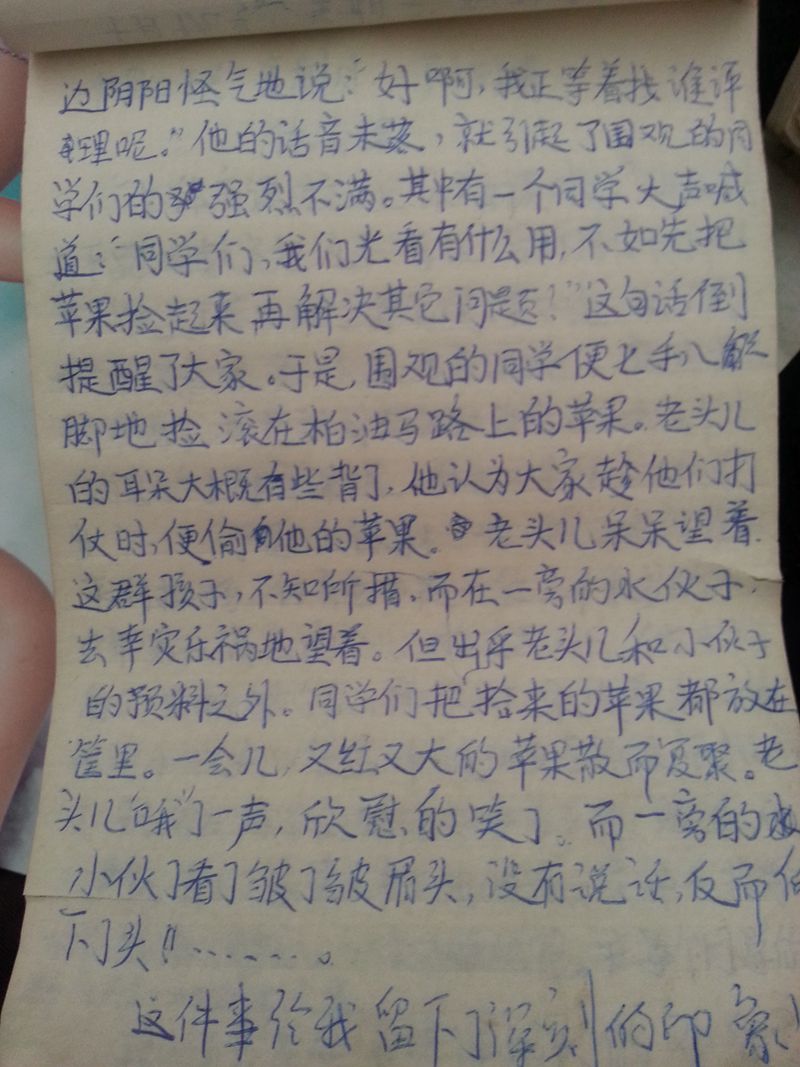 边阴阳怪气地说：“好啊，我正等着找谁评
理呢。”他的话音未落，就引起了围观的同
学们的强烈不满。其中有一个同学大声喊
道：“同学们，我们光看有什么用，不如先把
苹果捡起来再解决其它问题！”这句话倒
提醒了大家。于是，围观的同学便七手八
脚地捡滚在柏油马路上的苹果。老头儿
的耳朵大概有些背了，他认为大家趁他们打
仗时，便偷他的苹果。老头儿呆呆望着
这群孩子，不知所措，而在一旁的小伙子，
去幸灾乐祸地望着。但出乎老头儿和小伙子
的预料之外。同学们把拾来的苹果都放在
筐里。一会儿，又红又大的苹果散而复聚。老
头儿“哦”了一声，欣慰的笑了。而一旁的
小伙子看了皱了皱眉头，没有说话，反而低
下了头！！……。
这件事给我留下了深刻的印象！